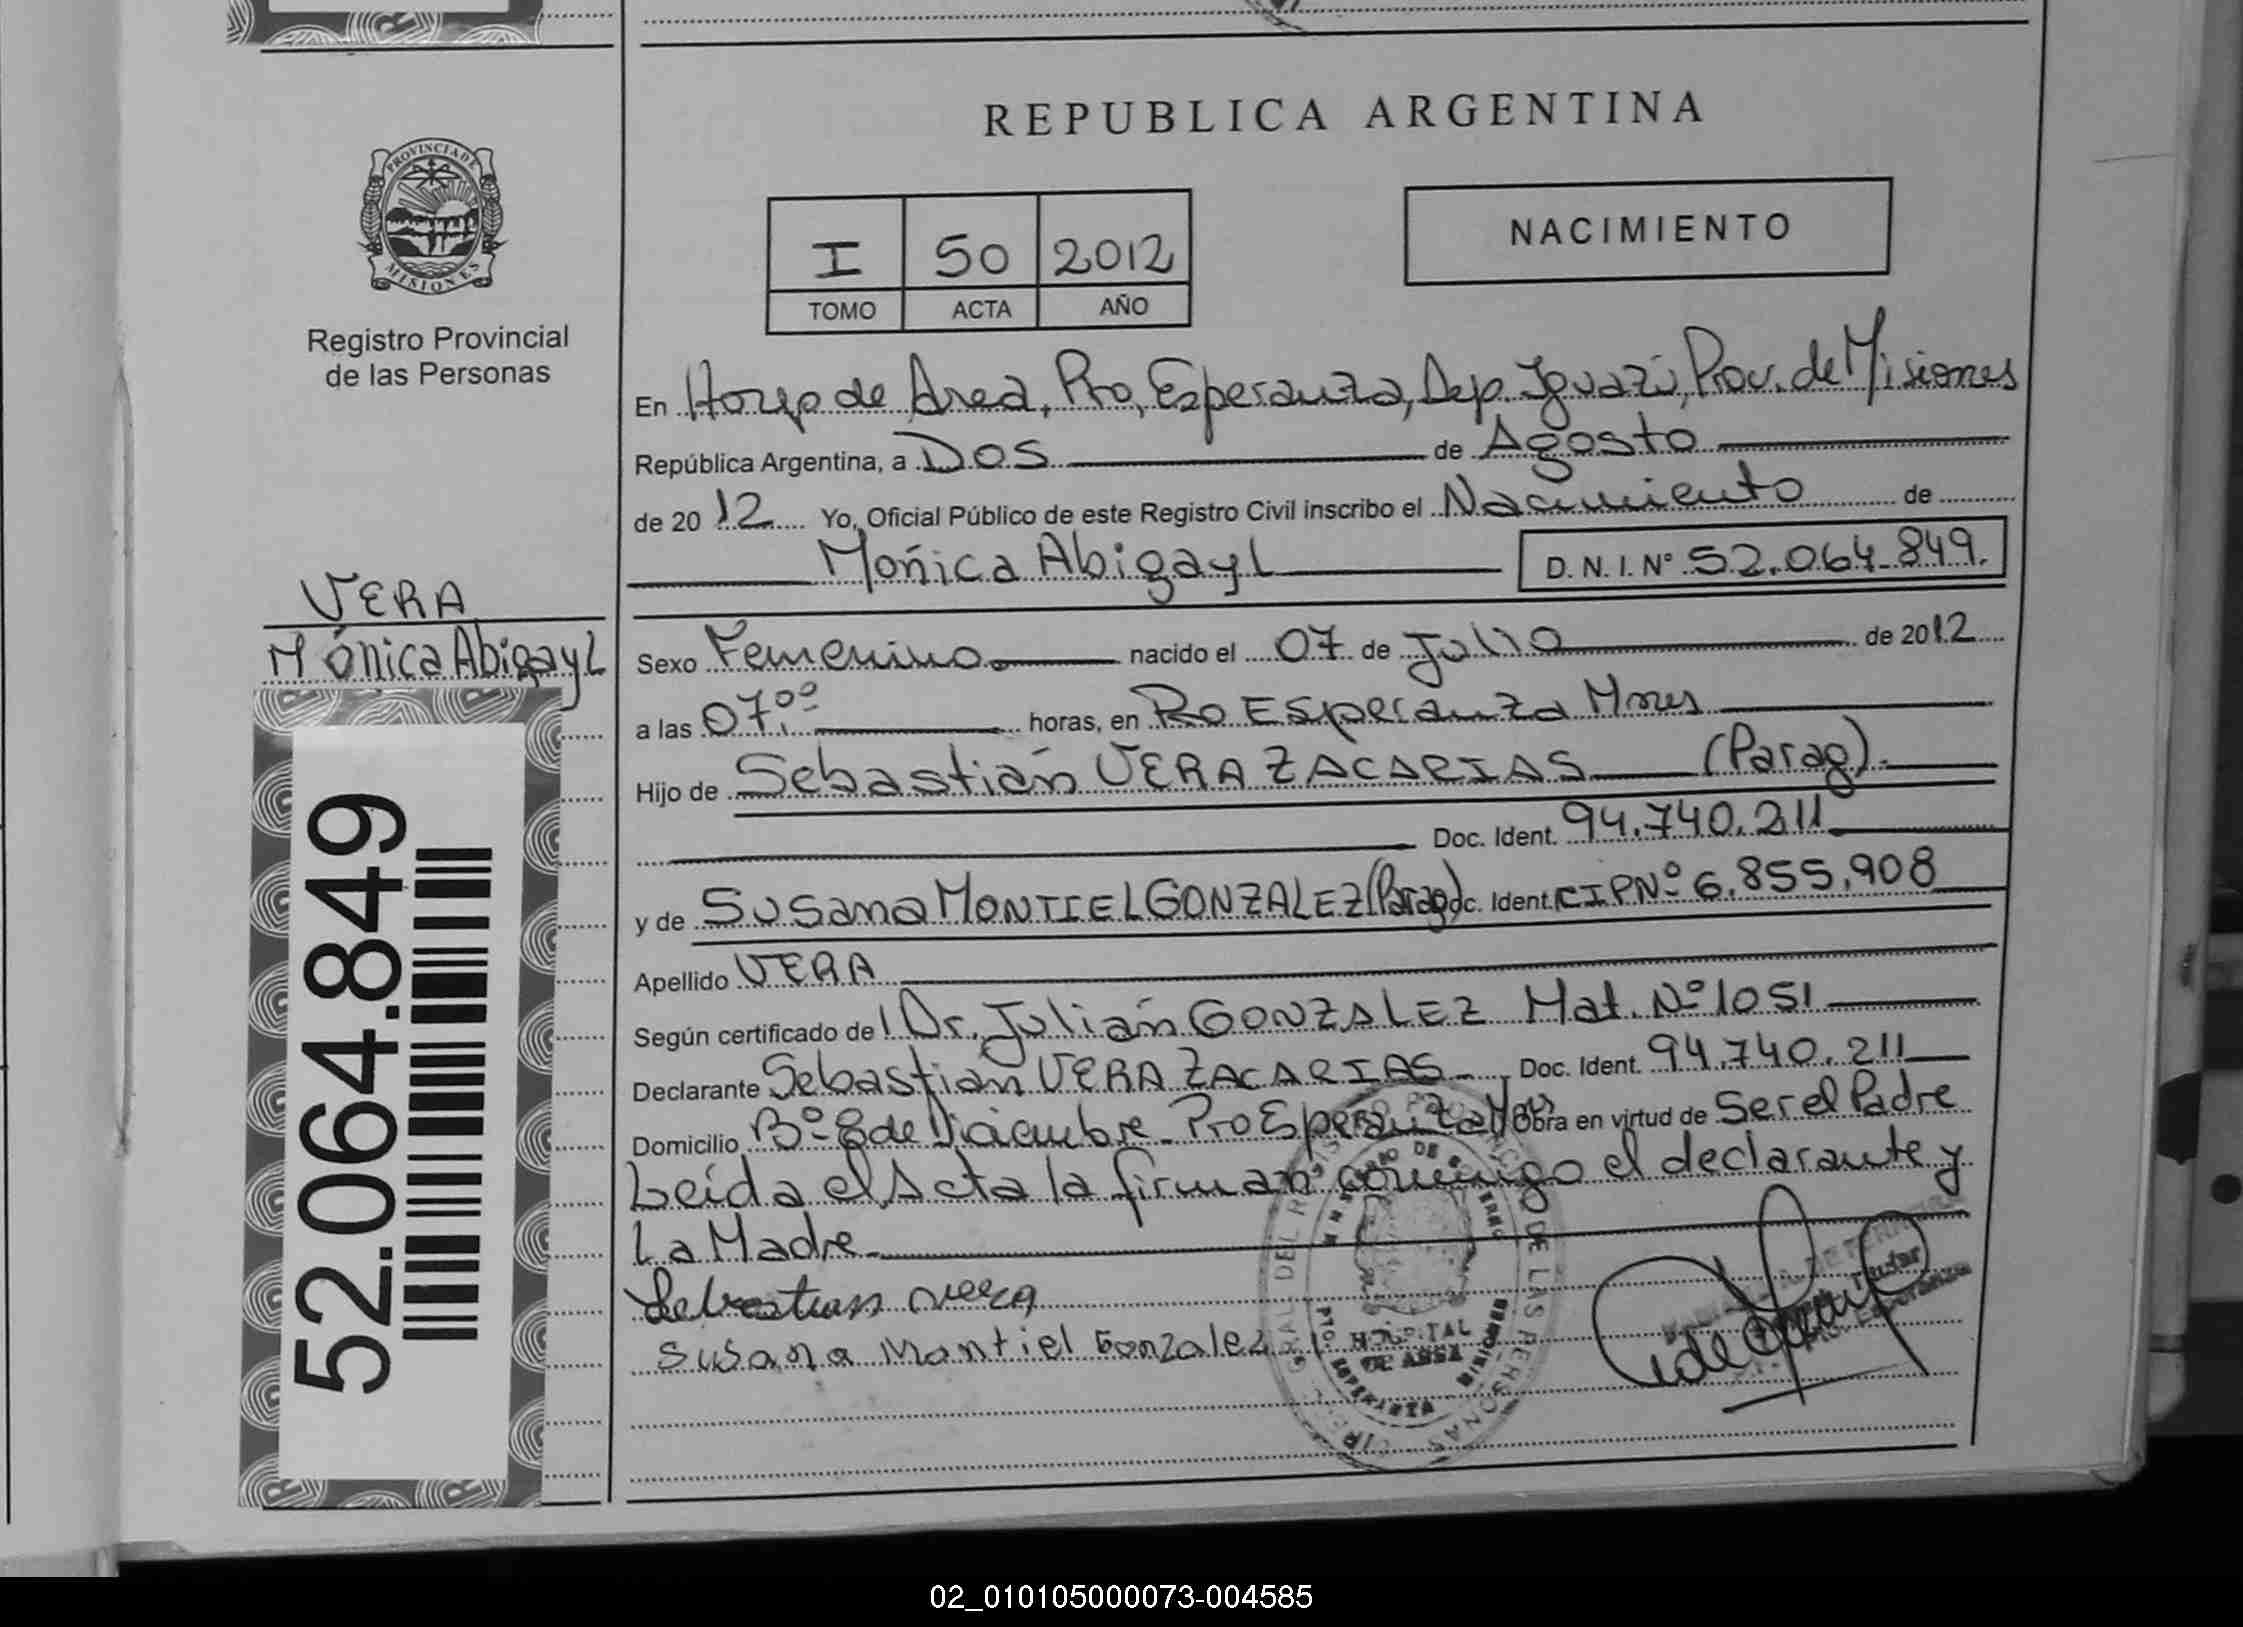 REPUBLICA ARGENTINA
PROVINCIA DE
MISIONES
Registro Provincial
de las Personas
I 50 2012
TOMO ACTA AÑO
NACIMIENTO
En Hosp de Area, Pto, Esperanza, Dep. Iguazú, Prov. de Misiones
República Argentina, a Dos de Agosto
de 2012 Yo, Oficial Público de este Registro Civil inscribo el Nacimiento de
Mónica Abigayl D.N.I. Nº 52.064.849.
VERA
Mónica Abigayl
Sexo Femenino nacido el 07 de Julio de 2012
a las 07:00 horas, en Pto Esperanza Mnes
Hijo de Sebastián VERA ZACARIAS (Parag).
Doc. Ident. 94.740.211
y de Susana MONTIEL GONZALEZ (Parag) Doc. Ident. CIPNº 6.855.908
Apellido VERA
Según certificado de Dr. Julián GONZALEZ Mat. Nº 1051
Declarante Sebastián VERA ZACARIAS Doc. Ident. 94.740.211
Domicilio Bº 8 de Diciembre Pto Esperanza Obra en virtud de Ser el Padre
Leída el Acta la firman conmigo el declarante y
La Madre
Sebastian Vera
Susana Montiel Gonzalez
HOSPITAL
DE AREA
DE LAS PERSONAS
Titular
Esperanza
52.064.849
02_010105000073-004585